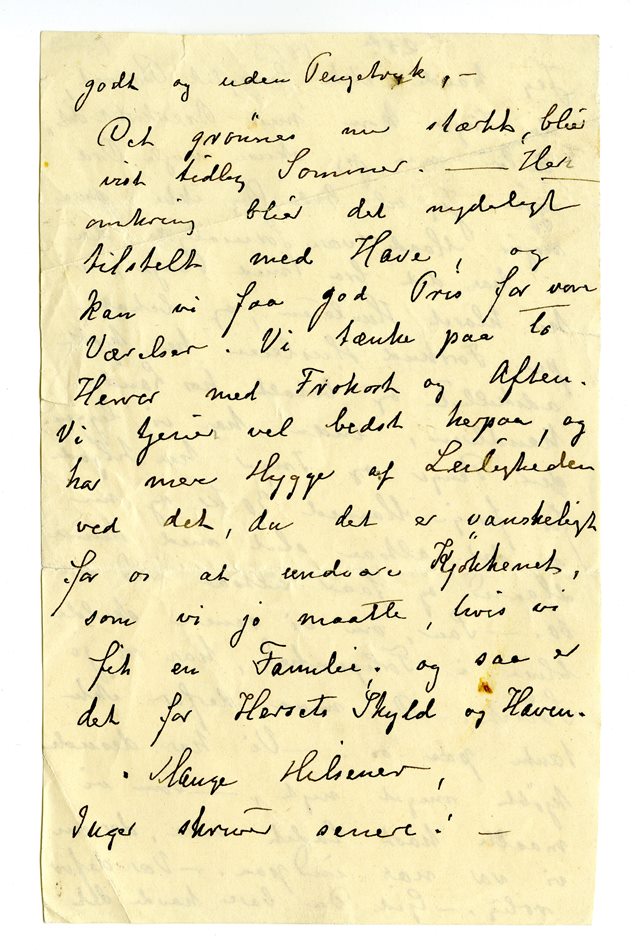 godt og uden Pengetryk, –
Det grönnes nu stærkt, blir
vist tidlig Sommer. — Her
omkring blir det nydeligt
tilstelt med Have, og
kan vi faa god Pris for vore
Værelser. Vi tænke paa to
Herrer med Frokost og Aften.
Vi tjener vel bedst herpaa, og
har mere Hygge af Leiligheden
ved det, da det er vanskeligt
for os at undvære Kjökkenet,
som vi jo maatte, hvis vi
fik en Familie. og saa er
det for Husets Skyld og Haven.
Mange Hilsener,
Inger skriver senere! –